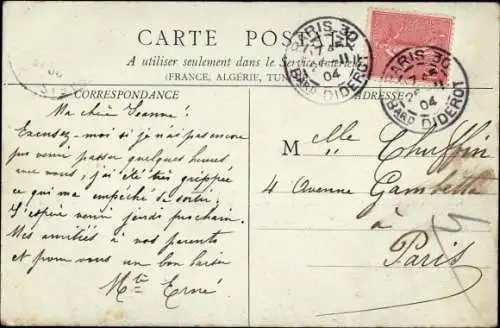 CARTE POSTALE
A utiliser seulement dans le Service intérieur
(FRANCE, ALGÉRIE, TUN
CORRESPONDANCE
ADRESSE
PARIS 30
11
04
BARD DIDEROT
PARIS 30
11
04
BARD DIDEROT
Ma chère Jeanne!
Excusez-moi si je n'ai pas encore
pu venir passer quelques heures
avec vous, j'ai été très grippée
ce qui m'a empêché de sortir.
J'espère venir jeudi prochain.
Mes amitiés à vos parents
et pour vous un bon baiser
Mte
Melle Chuffin
4 Avenue Gambetta
à
Paris